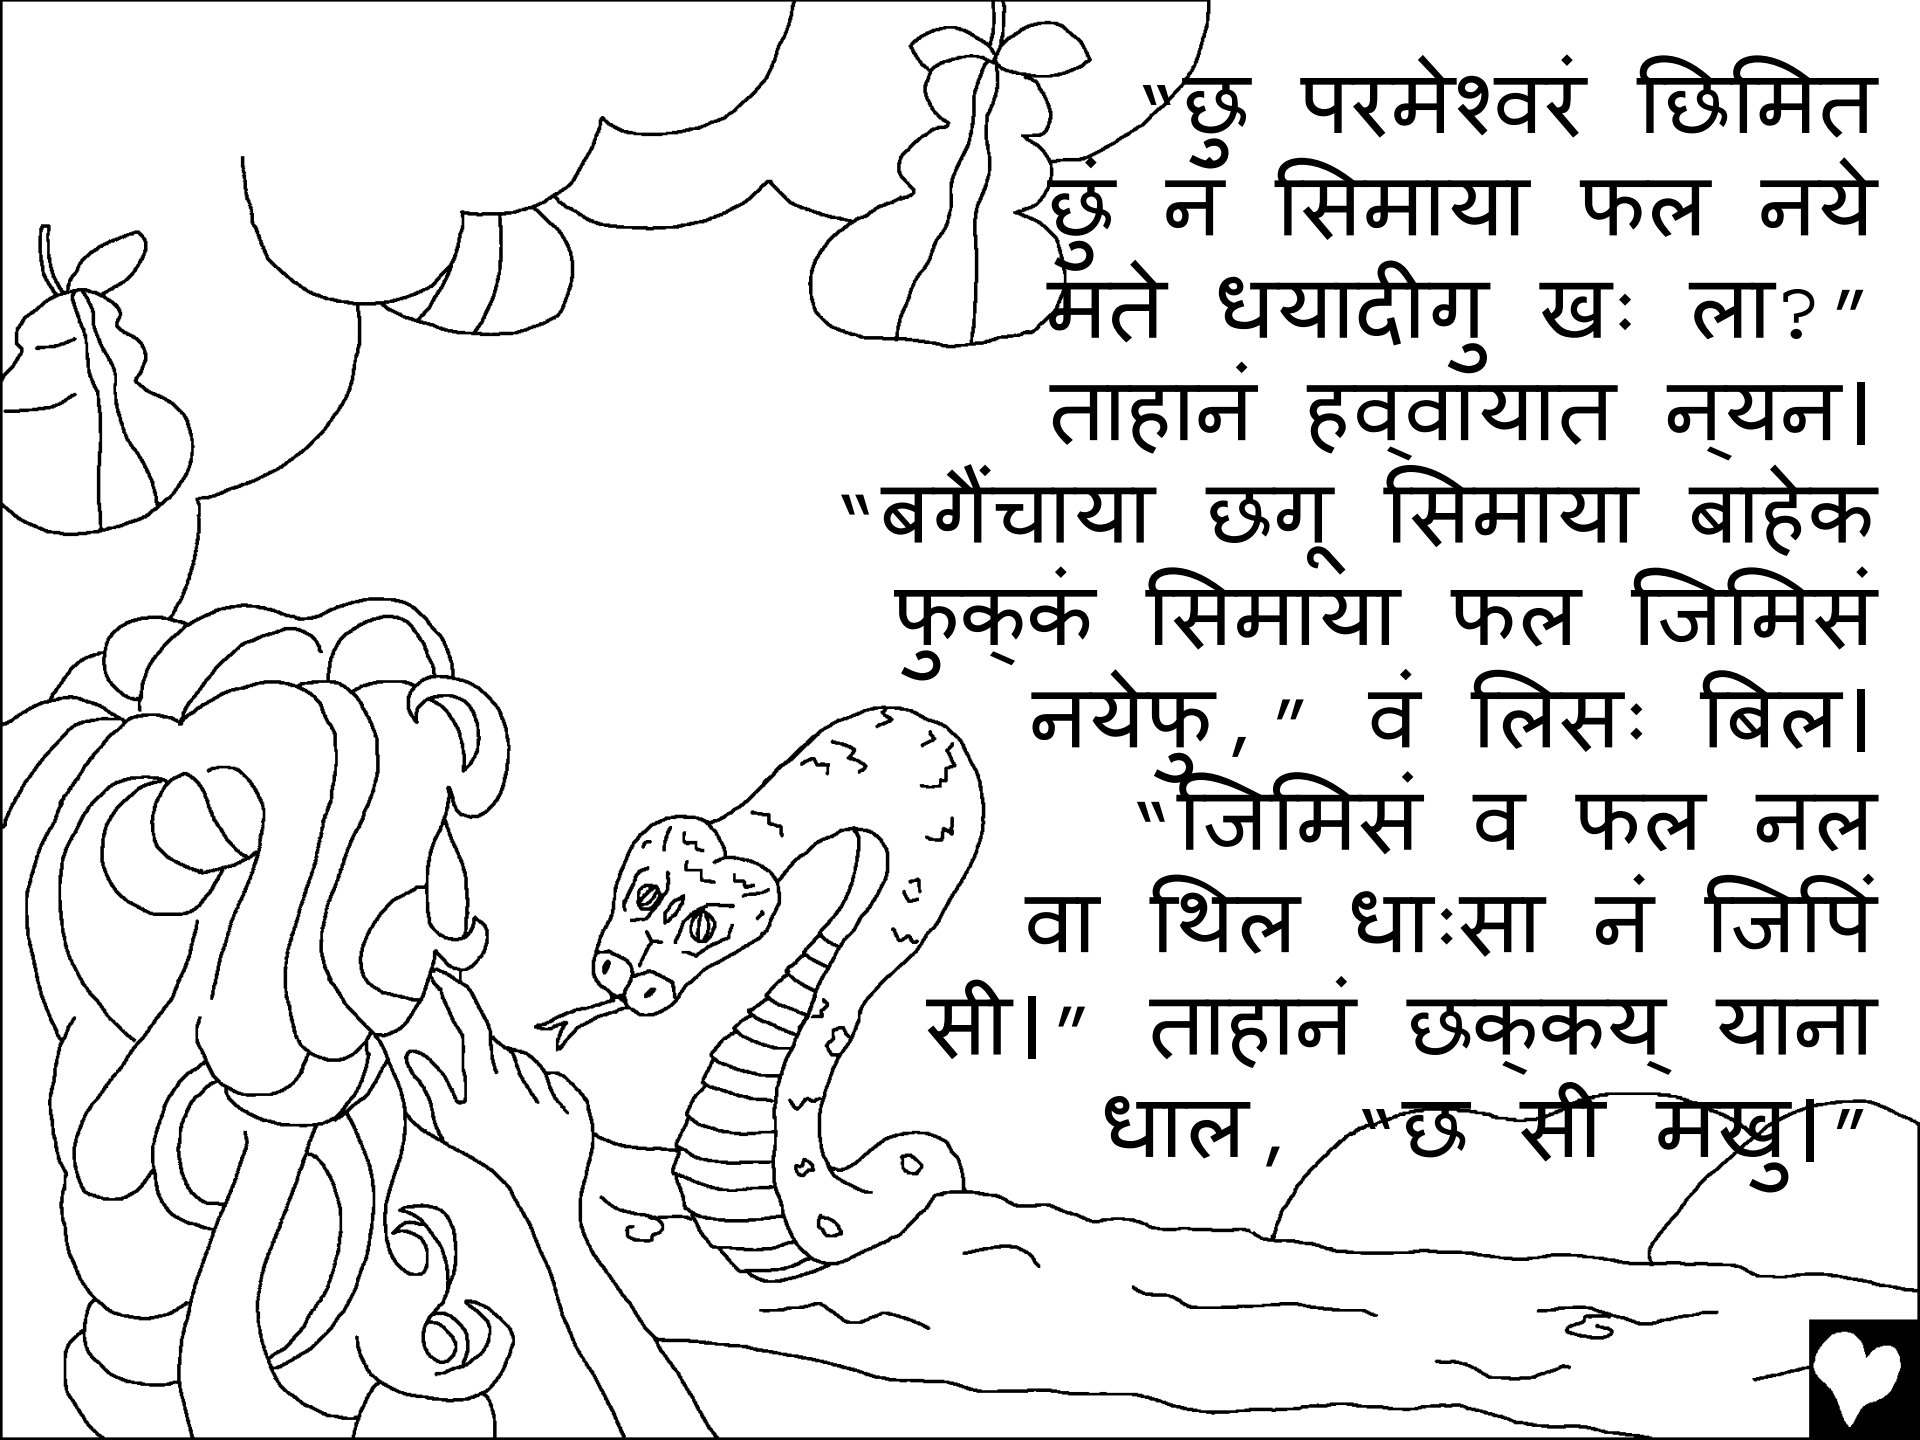 “छु परमेश्वरं छिमित
छुं नं सिमाया फल नये
मते धयादीगु खः ला?”
ताहानं हव्‌वायात न्‌यन।
“बगैंचाया छगू सिमाया बाहेक
फुक्‌कं सिमाया फल जिमिसं
नयेफु,” वं लिसः बिल।
“जिमिसं व फल नल
वा थिल धाःसा नं जिपिं
सी।” ताहानं छक्‌कय्‌ याना
धाल, “छ सी मखु।”